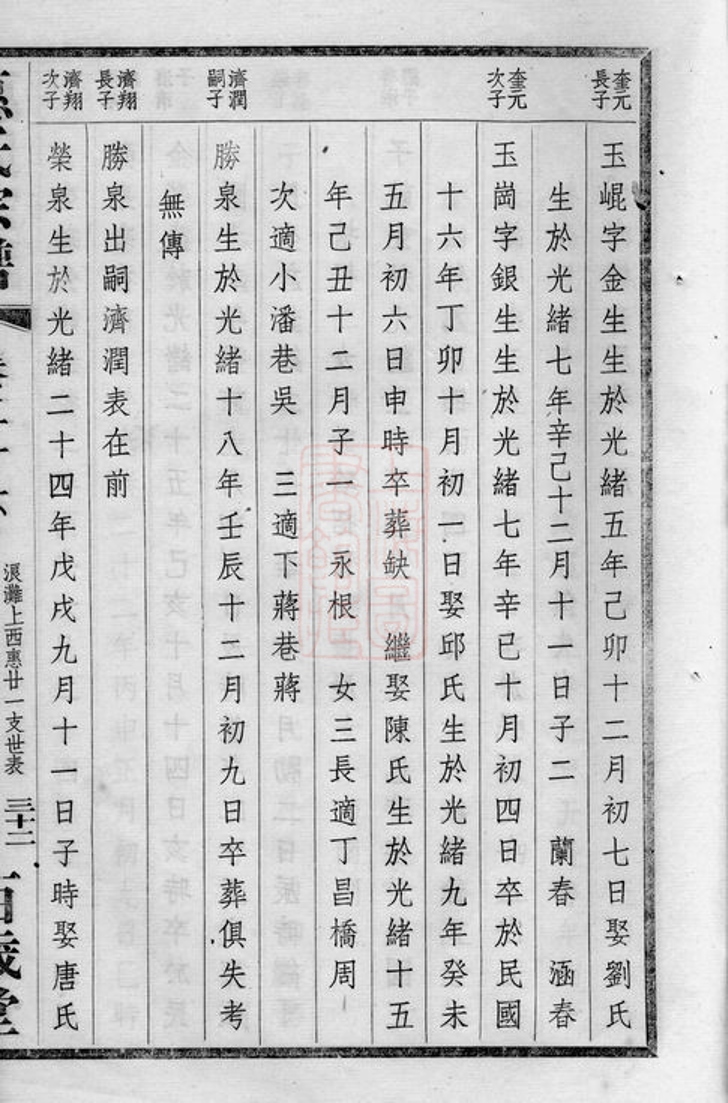 奎元長子
玉崐字金生生於光緒五年己卯十二月初七日娶劉氏
生於光緒七年辛己十二月十一日子二 蘭春 涵春
奎元次子
玉崗字銀生生於光緒七年辛已十月初四日卒於民國
十六年丁卯十月初一日娶邱氏生於光緒九年癸未
五月初六日申時卒葬缺 繼娶陳氏生於光緒十五
年己丑十二月子一 永根 女三長適丁昌橋周
次適小潘巷吳 三適下蔣巷蔣
濟潤嗣子
勝泉生於光緒十八年壬辰十二月初九日卒葬俱失考
無傳
濟翔長子
勝泉出嗣濟潤表在前
濟翔次子
榮泉生於光緒二十四年戊戌九月十一日子時娶唐氏
氏宗譜
浪灘上西惠廿一支世表
三十二
百歲堂